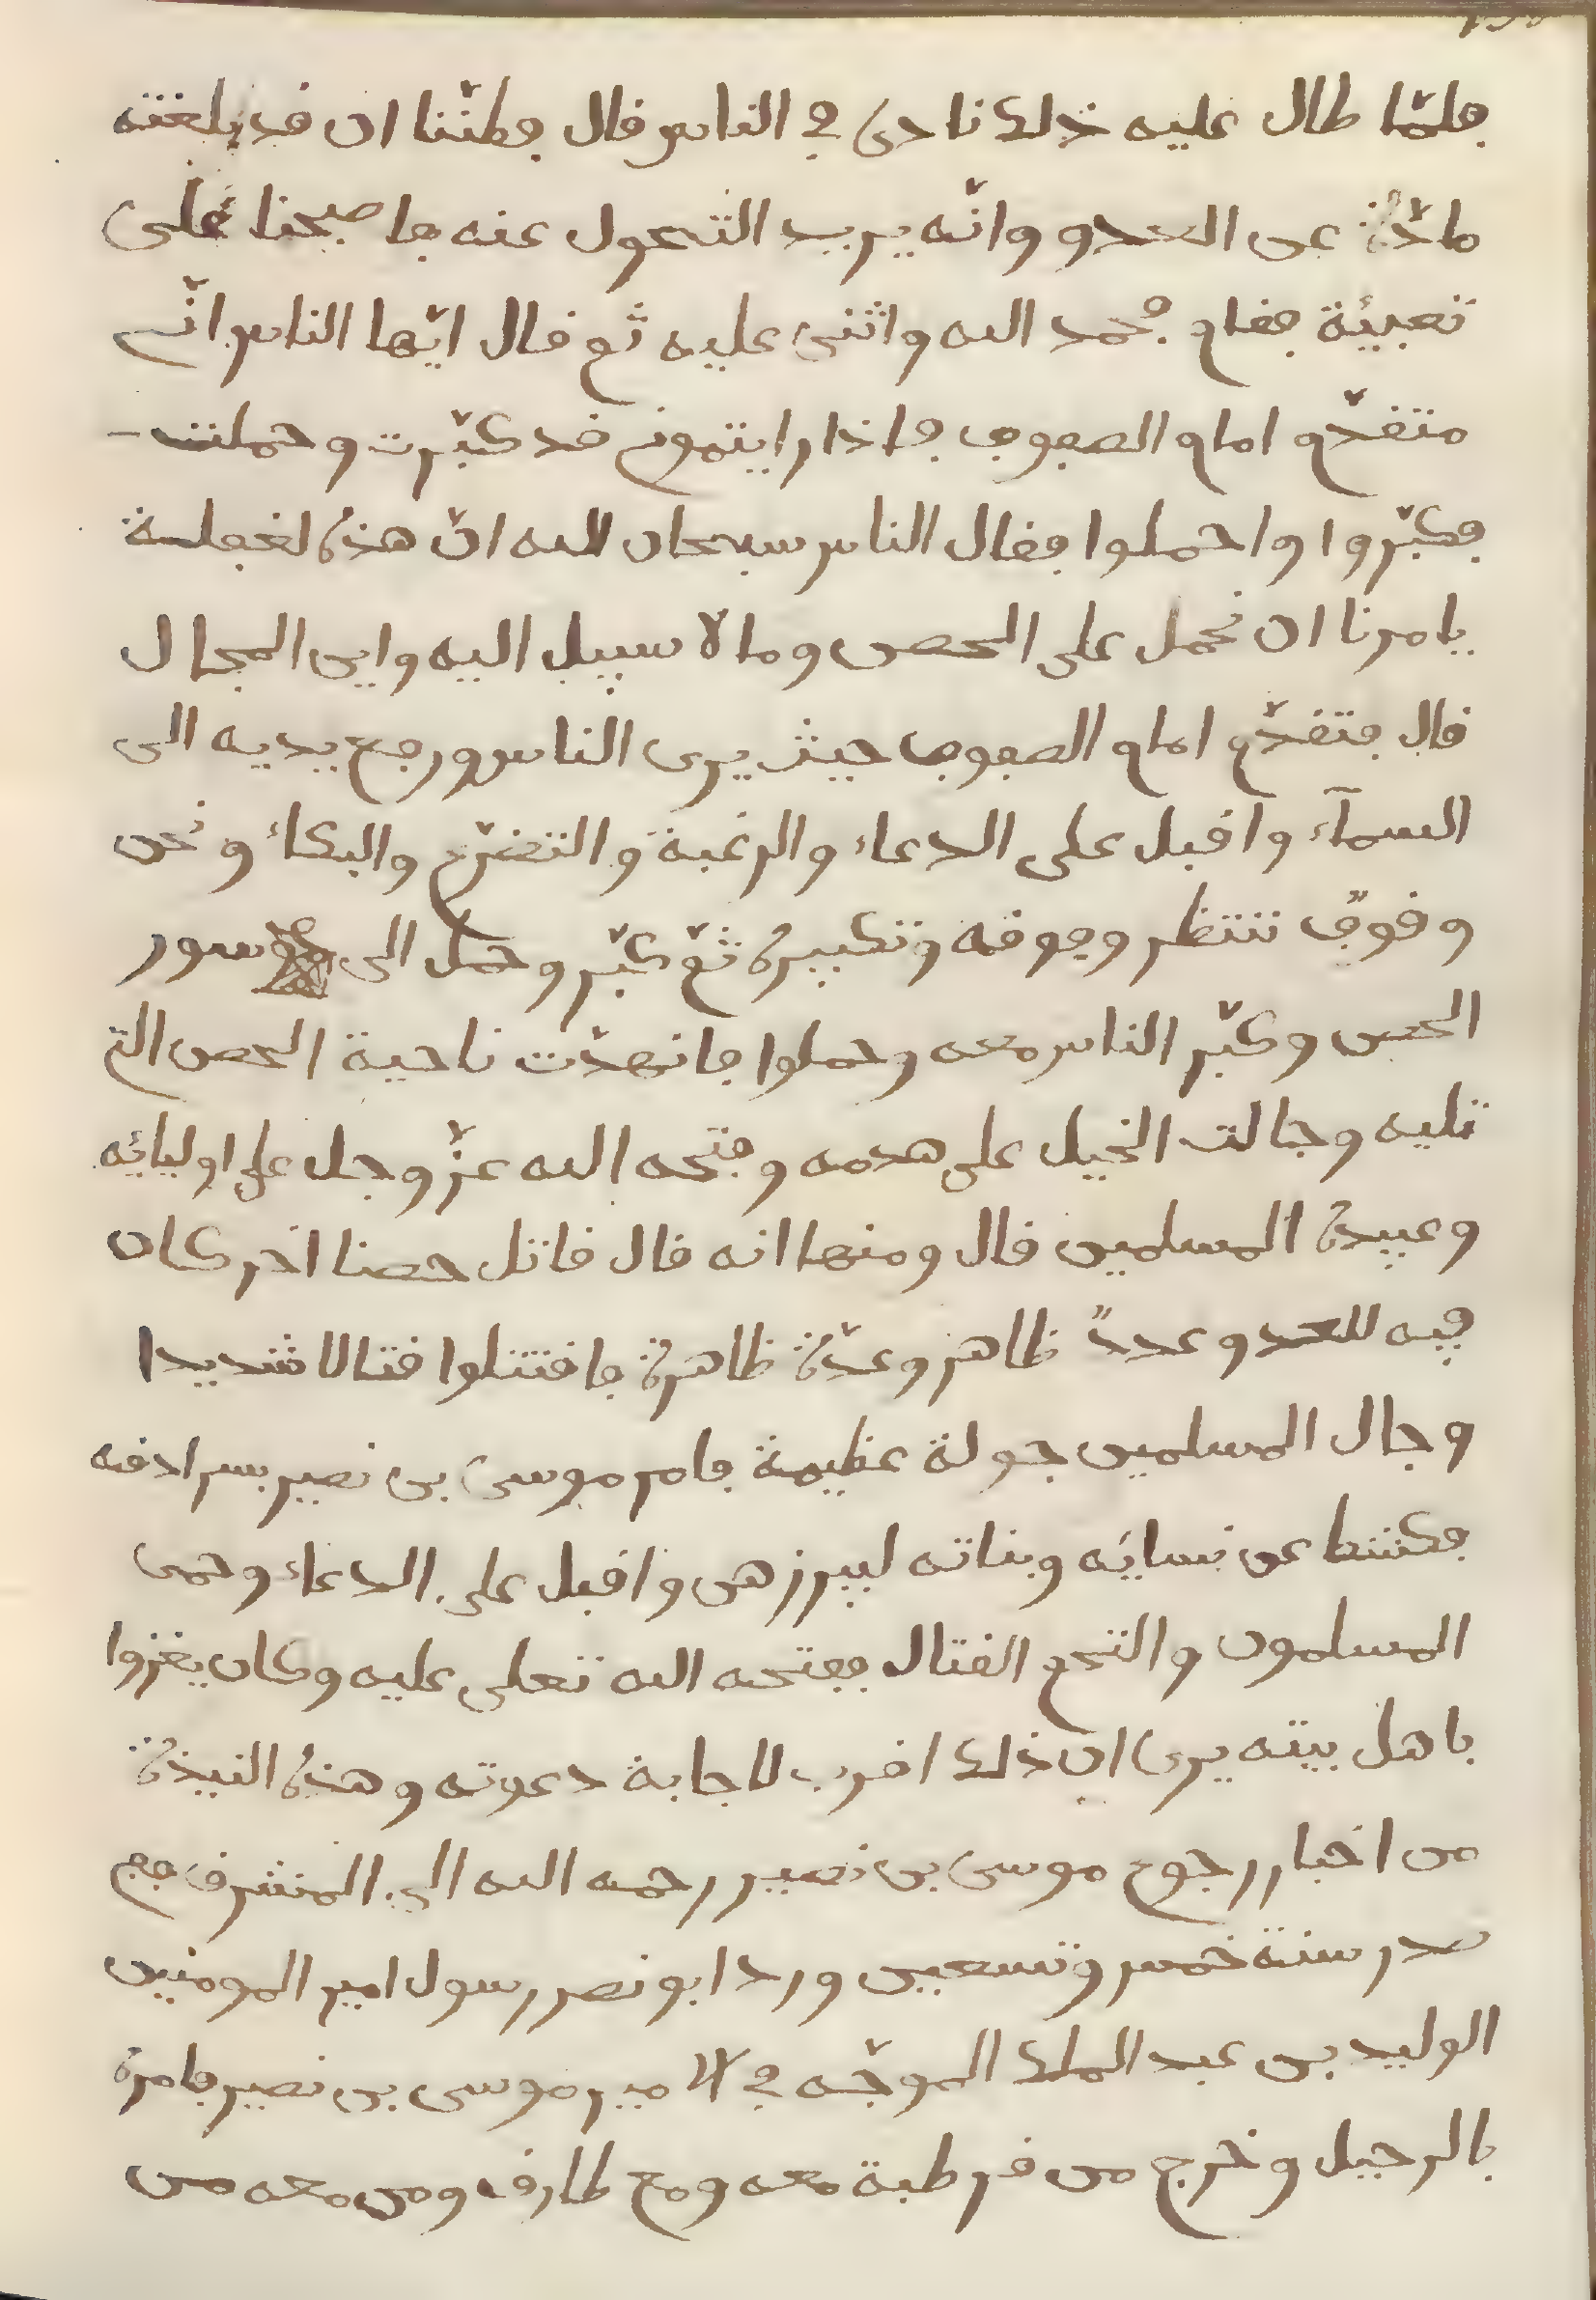 فلمّا طال عليه ذلك نادى في الناس فال فظنّنا ان فد بلغته
مادّة عن العدو وانّه يريد التحول عنه فاصبحنا على
تعبيئة ففام فحمد الله واثنى عليه ثم فال ايّها الناس انّي
متفدّم امام الصفوف فاذا رايتموني فد كبّرت وحملت
فكبّروا واحملوا ففال الناس سبحان الله انّ هذه لغفلة
يامرنا ان نحمل على الحصن وما لا سبيل اليه واين المجال
فال فتفدّم امام الصفوف حيث يرى الناس ورجع يديه الى
السمآء وافبل على الدعاء والرغبة والتضرّع والبكاء ونحن
وفوفٌ ننتظر وفوفه وتكبيره ثمّ كبّر وحمل الى سور
الحصن وكبّر الناس معه وحملوا فانهدّت ناحية الحصن التي
تليه وجالت الخيل على هدمه وفتحه الله عزّ وجل على اوليائه
وعبيده المسلمين فال ومنها انه فال فاتل حصنا اخر كان
فيه للعدو عددٌ ظاهر وعدّة ظاهرة فافتتلوا فتالا شديدا
وجال المسلمين جولة عظيمة فامر موسى بن نصير بسرادفه
فكشط عن نسائه وبناته ليبرزهن وافبل على الدعاء وحمى
المسلمون والتحم الفتال ففتحه الله تعلى عليه وكان يغزوا
باهل بيته يرى ان ذلك افرب لاجابة دعوته وهذه النبذة
من اخبار رجوع موسى بن نصير رحمه الله الى المشرف ففي
صدر سنة خمس وتسعين ورد ابو نصر رسول امير المومنين
الوليد بن عبد الملك الموجّه في الامير موسى بن نصير فامره
بالرحيل وخرج من فرطبة معه ومع طارف ومن معه من